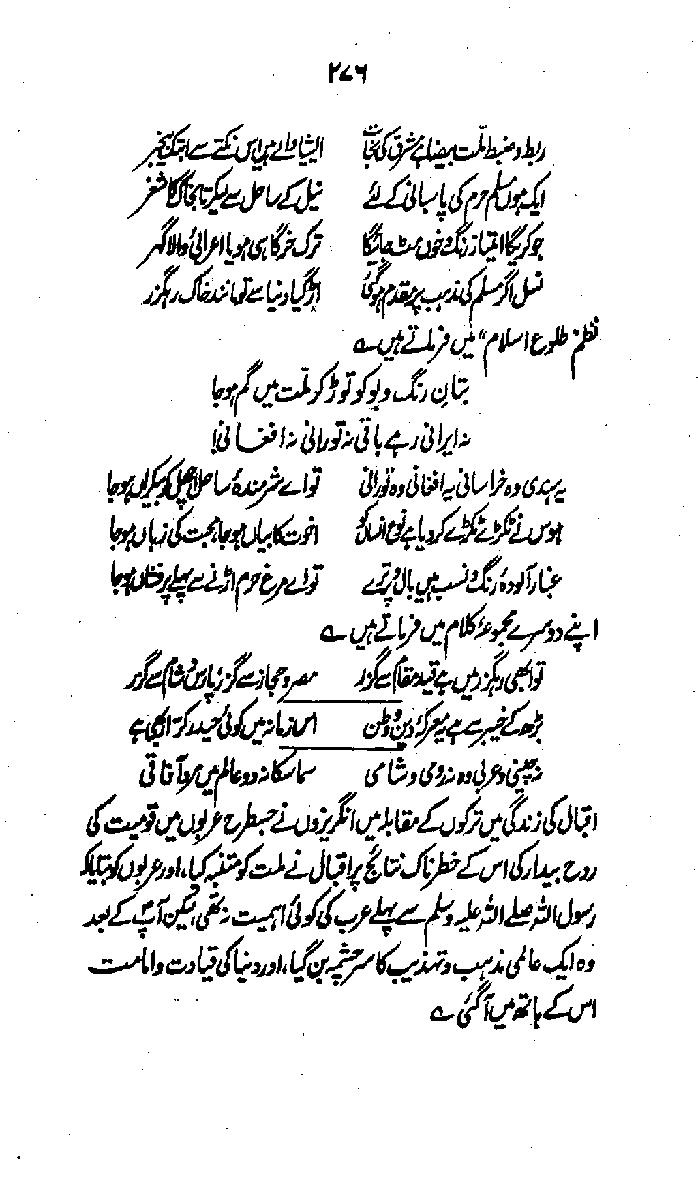 ۲۷۶
ربط و ضبط ملّت بیضا ہے مشرق کی نجات ایشیا والے ہیں اس نکتے سے ابتک بیخبر
ایک ہوں مسلم حرم کی پاسبانی کے لئے نیل کے ساحل سے لیکر تا بخاک کاشغر
جو کریگا امتیاز رنگ و خوں مٹ جائیگا ترک خرگاہی ہو یا اعرابئ والا گہر
نسل اگر مسلم کی مذہب پر مقدم ہو گئی اڑ گیا دنیا سے تو مانند خاک رہگزر
نظم "طلوع اسلام" میں فرماتے ہیں ؎
بتانِ رنگ و بو کو توڑ کر ملّت میں گم ہو جا
نہ ایرانی رہے باقی نہ تورانی نہ افغانی!
یہ ہندی وہ خراسانی یہ افغانی وہ تورانی تو اے شرمندۂ ساحل اچھل کر بیکراں ہو جا
ہوس نے ٹکڑے ٹکڑے کر دیا ہے نوع انساں کو اخوت کا بیاں ہو جا، محبت کی زباں ہو جا
غبار آلودۂ رنگ و نسب ہیں بال و پر تیرے تو اے مرغ حرم اڑنے سے پہلے پر فشاں ہو جا
اپنے دوسرے مجموعۂ کلام میں فرماتے ہیں ؎
تو ابھی رہگزر میں ہے قید مقام سے گزر مصر و حجاز سے گزر پارس و شام سے گزر
بڑھ کے خیبر سے ہے یہ معرکۂ دین و وطن اس زمانہ میں کوئی حیدر کرّار بھی ہے
نہ چینی و عربی وہ نہ رومی و شامی سما سکا نہ دو عالم میں مرد آفاقی
اقبال کی زندگی میں ترکوں کے مقابلہ میں انگریزوں نے جسطرح عربوں میں قومیت کی
روح بیدار کی اس کے خطرناک نتائج پر اقبال نے ملت کو متنبّہ کیا، اور عربوں کو بتلایا کہ
رسول اللہ صلے اللہ علیہ وسلم سے پہلے عرب کی کوئی اہمیت نہ تھی، لیکن آپؐ کے بعد
وہ ایک عالمی مذہب و تہذیب کا سرچشمہ بن گیا، اور دنیا کی قیادت و امامت
اس کے ہاتھ میں آ گئی ؎